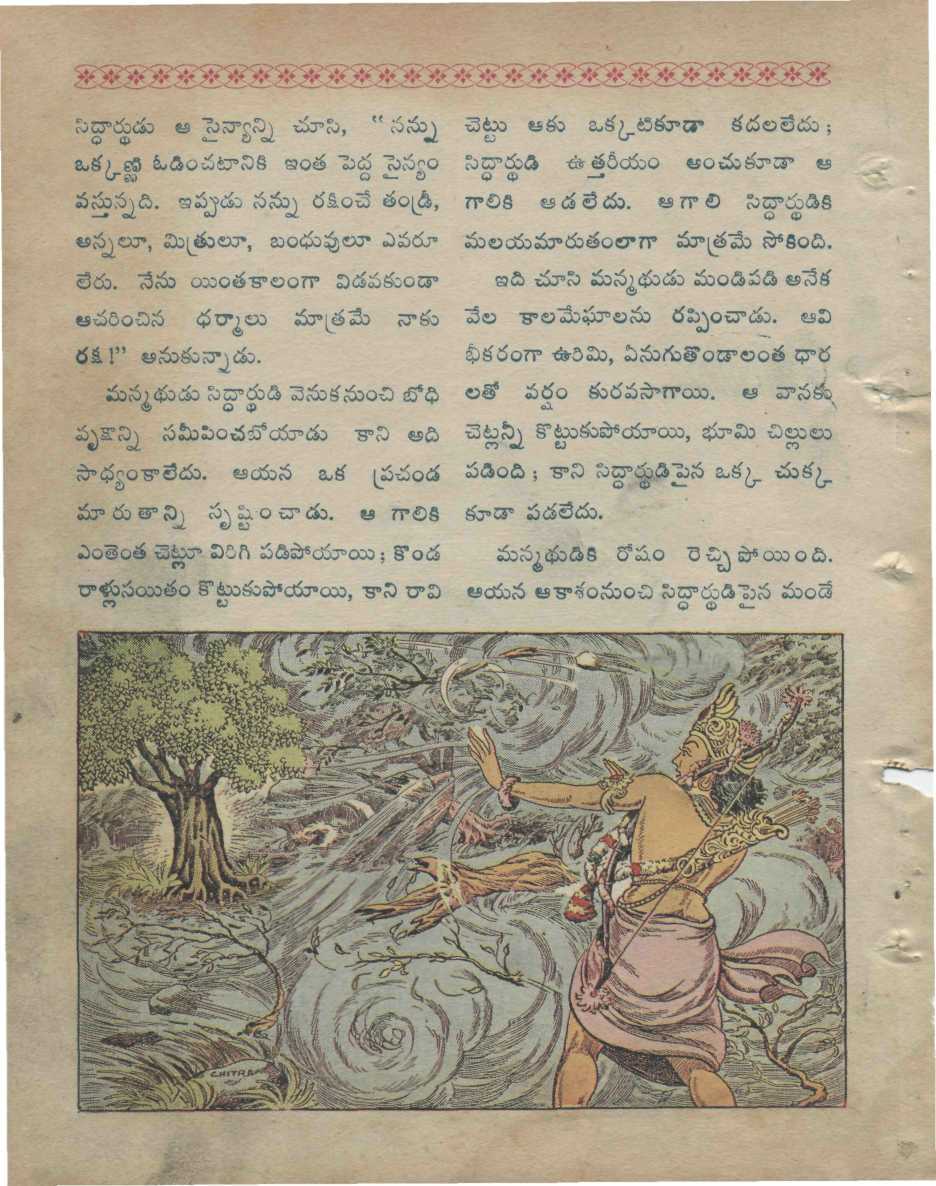 సిద్ధార్థుడు ఆ సైన్యాన్ని చూసి, "నన్ను
ఒక్కణ్ణి ఓడించటానికి ఇంత పెద్ద సైన్యం
వస్తున్నది. ఇప్పుడు నన్ను రక్షించే తండ్రీ,
అన్నలూ, మిత్రులూ, బంధువులూ ఎవరూ
లేరు. నేను యింతకాలంగా విడవకుండా
ఆచరించిన ధర్మాలు మాత్రమే నాకు
రక్ష!" అనుకున్నాడు.
మన్మథుడు సిద్ధార్థుడి వెనుకనుంచి బోధి
వృక్షాన్ని సమీపించబోయాడు కాని అది
సాధ్యంకాలేదు. ఆయన ఒక ప్రచండ
మారుతాన్ని సృష్టించాడు. ఆ గాలికి
ఎంతెంత చెట్లూ విరిగి పడిపోయాయి; కొండ
రాళ్లుసయితం కొట్టుకుపోయాయి, కాని రావి
చెట్టు ఆకు ఒక్కటికూడా కదలలేదు;
సిద్ధార్థుడి ఉత్తరీయం అంచుకూడా ఆ
గాలికి ఆడలేదు. ఆగాలి సిద్ధార్థుడికి
మలయమారుతంలాగా మాత్రమే సోకింది.
ఇది చూసి మన్మథుడు మండిపడి అనేక
వేల కాలమేఘాలను రప్పించాడు. ఆవి
భీకరంగా ఉరిమి, ఏనుగుతొండాలంత ధార
లతో వర్షం కురవసాగాయి. ఆ వానకు
చెట్లన్నీ కొట్టుకుపోయాయి, భూమి చిల్లులు
పడింది; కాని సిద్ధార్థుడిపైన ఒక్క చుక్క
కూడా పడలేదు.
మన్మథుడికి రోషం రెచ్చిపోయింది.
ఆయన ఆకాశంనుంచి సిద్ధార్థుడిపైన మండే
CHITRA